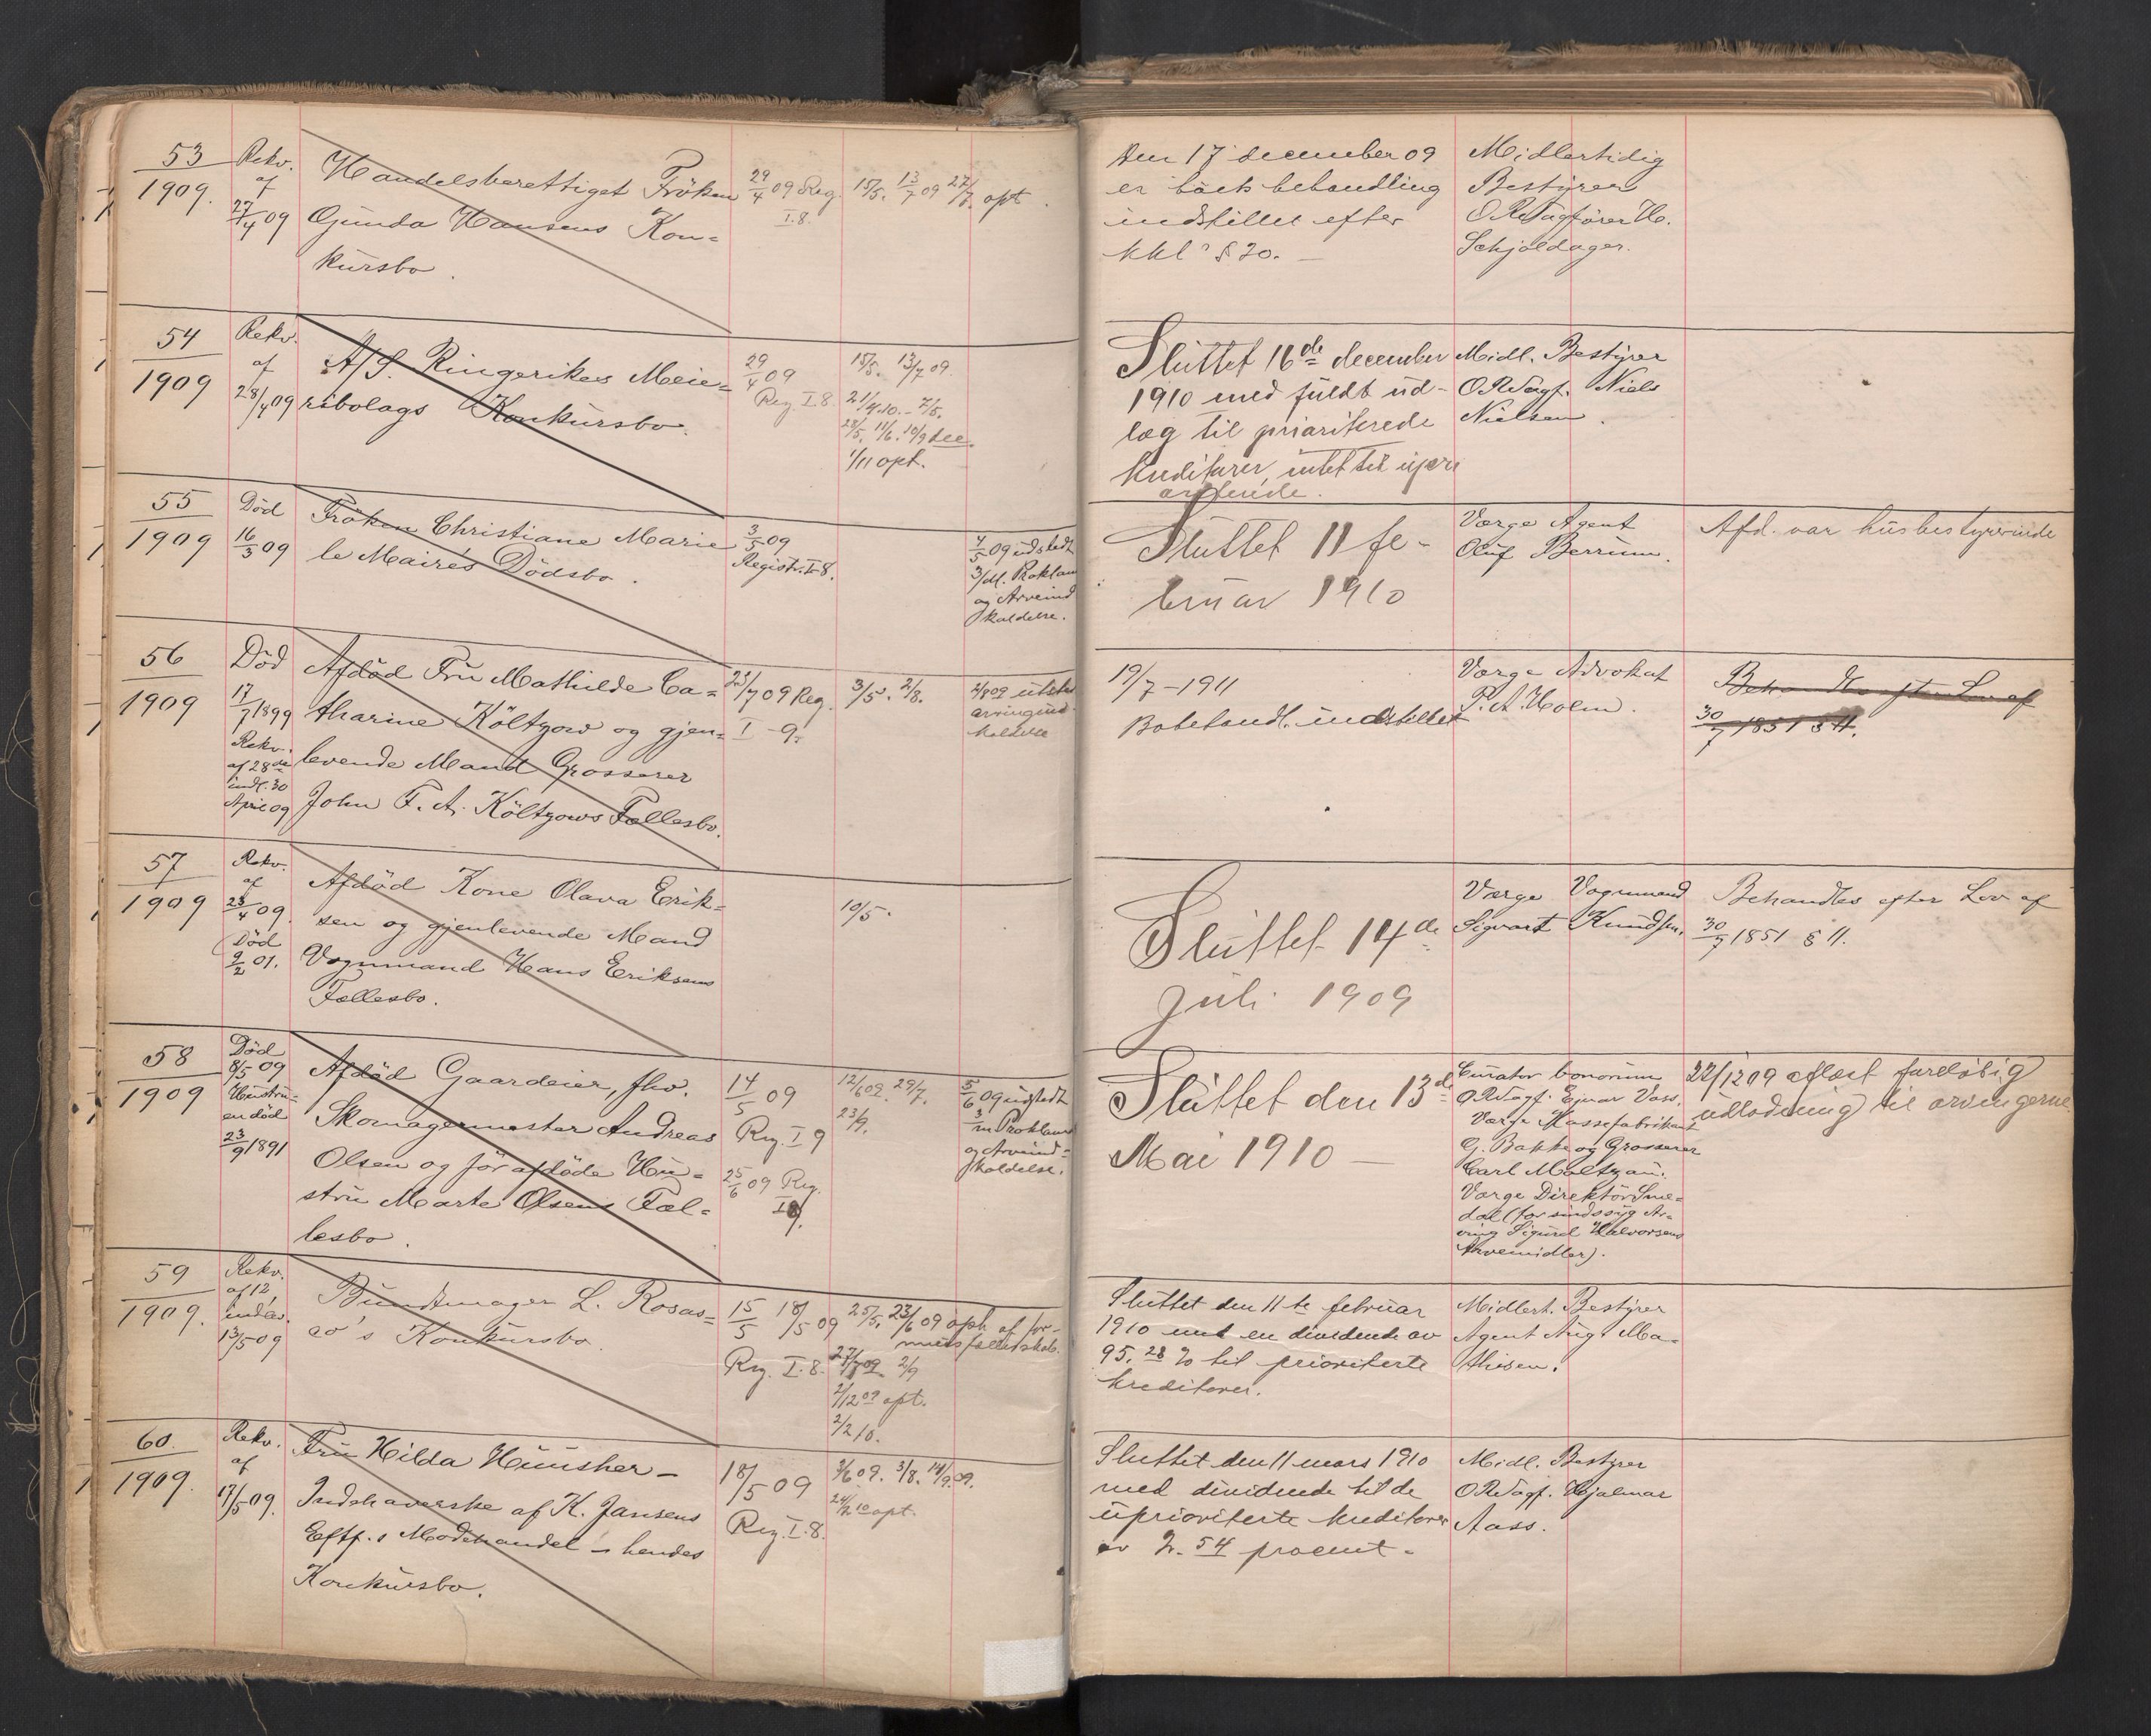 53
1909.
Rekv.
af
27/4 09
Handelsberettiget Fröken
Gunda Hansens Kon=
kursbo.
29/4 09 Reg.
I.8.
15/5. 13/7 09 opt.
Den 17 december 09
er bobehandling
indstillet efter
kkl § 20.
Midlertidig
Bestyrer
O.R.Sagfører H.
Schjoldager.
54
1909
Rekv.
af
28/4 09
A/S. Ringerikes Meie=
ribolags Konkursbo.
29/4 09
Reg. I.8.
15/5. 13/7 09.
21/4.10. - 7/5.
28/5. 11/6. 10/9
1/11 opt.
Sluttet 16de december
1910 med fuldt ud-
læg til prioriterede
kreditorer, intet til upri
oriterede.
Midl. Bestyrer
O.R.Sagf. Niels
Nielsen.
55
1909
Död
16/3 09
Fröken Christiane Marie
le Maire's Dödsbo.
3/5 09
Registr. I-8.
4/5 09 udstedt
3/M. Proklam
og Arveind
kaldelse.
Sluttet 11 fe-
bruar 1910
Værge Agent
Oluf Berrum.
Afd. var husbestyrerinde
56
1909
Död
17/7 1899
Rekv.
af 28de
indl. 30
April 09
Afdöd Fru Mathilde Ca=
tharine Költzow og gjen=
levende Mand Grosserer
John F. A. Költzows Fællesbo.
23/7 09 Reg.
I - 9.
3/5. 2/8.
2/8 09 utstedt
arvingind
kaldelse
19/7 - 1911
Bobehandl. indstillet
Værge Advokat
P. A. Holm.
Behandles efter Lov af
30/7 1851 § 11.
57
1909
Rekv.
af
23/4 09.
(Död
9/2 01.
Afdöd Kone Olava Erik=
sen og gjenlevende Mand
Vognmand Hans Eriksens
Fællesbo.
10/5.
Sluttet 14de
juli 1909
Værge Vognmand
Sigvart Knudsen.
Behandles efter Lov af
30/7 1851 § 11.
58
1909
Död
8/5 09
Hustru=
en död
23/9 1891
Afdöd Gaardeier, fhv.
Skomagermester Andreas
Olsen og för afdöde Hu=
stru Marte Olsens Fæl=
lesbo.
14/5 09
Reg. I 9
25/6 09 Reg.
12/6 09. 29/7.
23/9.
5/6 09 udstedt
3/m Proklama
og Arveind=
kaldelse.
Sluttet den 13d
Mai 1910 —
Curator bonorum
O.R.Sagf. Ejnar Vass.
Værge Kassefabrikant
G. Bakke og Grosserer
Carl Moltzau.
Værge Direktör Sme=
dal (for sindssyg Ar=
ving Sigurd Halvorsens
Arvemidler).
22/12 09 aflæst foreløbig
udlodning til arvingerne
59
1909.
Rekv.
af 12,
indl.
13/5 09
Buntmager L. Rosas=
co's Konkursbo.
15/5
18/5 09
Reg. I.8.
25/5. 23/6 09 oph. af for-
muesfællesskab.
27/7 09. 2/9
2/12 09 opt.
2/2 10.
Sluttet den 11te februar
1910 med en dividende av
95.28 % til prioriterte
kreditorer.
Midlert. Bestyrer
Agent Aug. Ma=
thisen.
60.
1909.
Rekv.
af
17/5 09.
Fru Hilda Huusher -
Indehaverske af K. Jansens
Eftf.s Modehandel - hendes
Konkursbo.
18/5 09
Reg. I.8.
3/6 09. 3/8. 14/9 09.
opt.
Sluttet den 11 mars 1910
med dividende til de
uprioriterte kreditorer
av 2.54 procent.
Midl. Bestyrer
O.R.Sagf. Hjalmar
Aass.